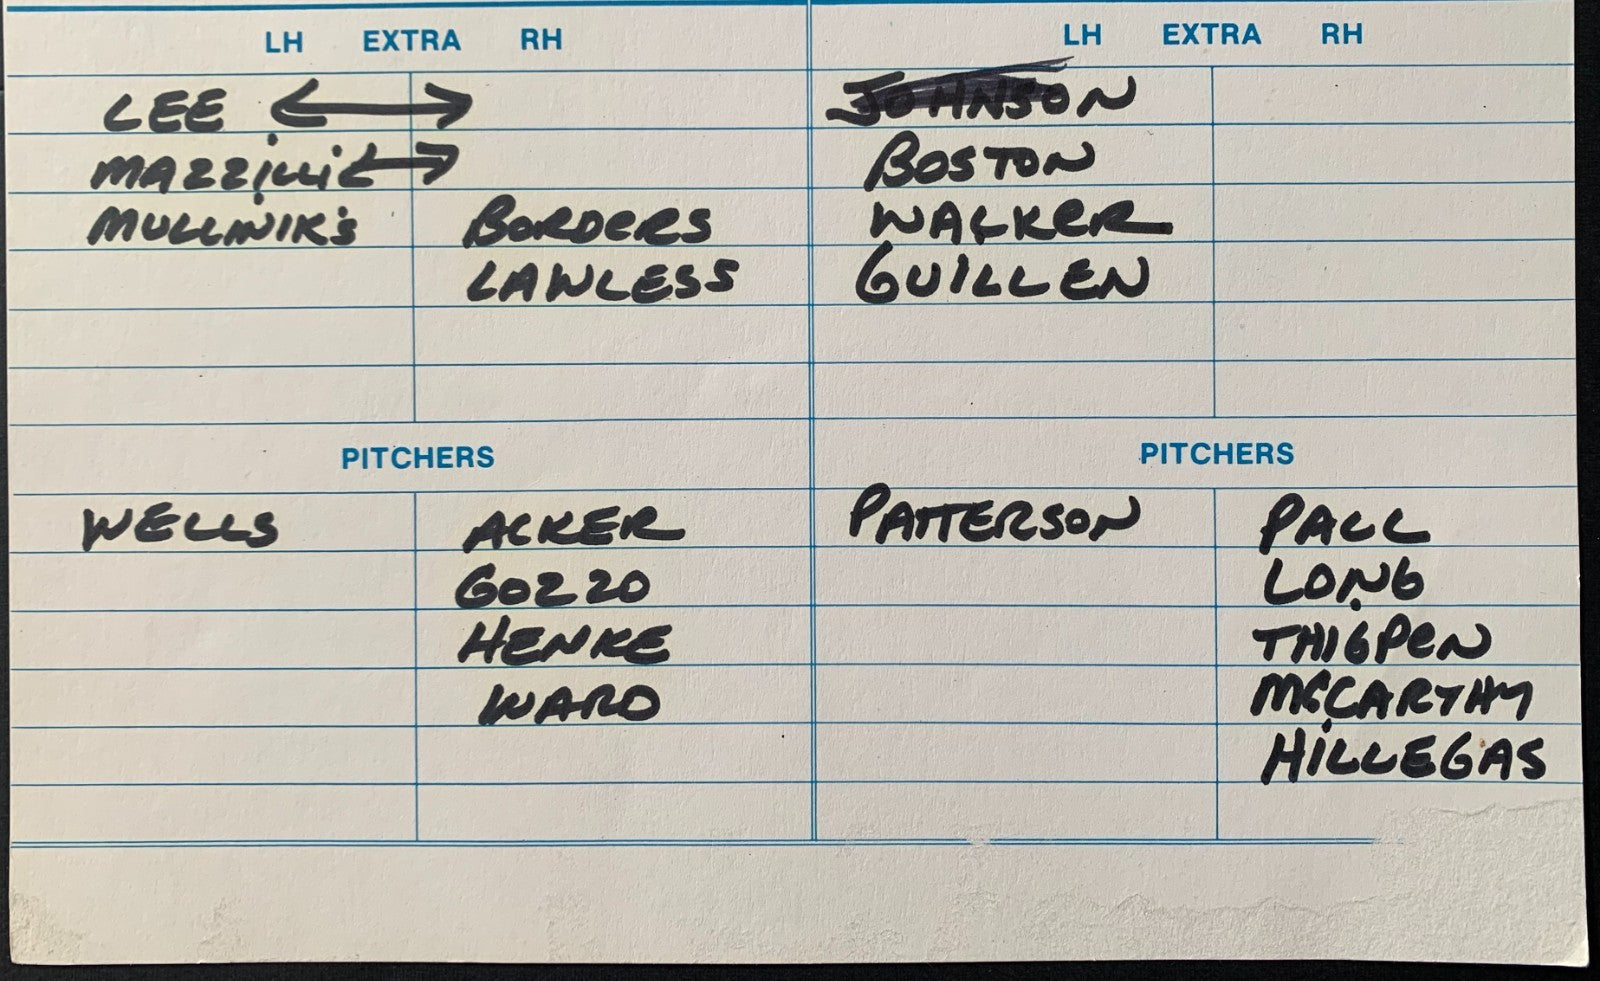 LH EXTRA RH
LEE
MAZZILLI
MULLINIK'S BORDERS
LAWLESS
PITCHERS
WELLS ACKER
GOZZO
HENKE
WARD
LH EXTRA RH
JOHNSON
BOSTON
WALKER
GUILLEN
PITCHERS
PATTERSON PALL
LONG
THIGPEN
MCCARTHY
HILLEGAS